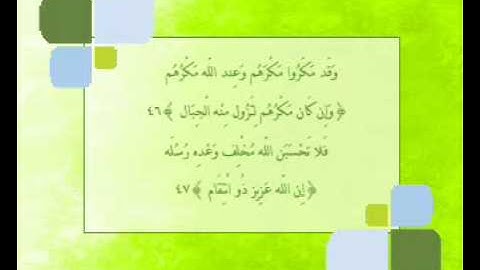 وَقَد مَكَرُوا مَكْرَهُم وَعِند اللَّه مَكْرُهُم
﴿وَإِن كَان مَكْرُهُم لِتَزُول مِنْه الْجِبَال ﴾٤٦
فَلا تَحْسَبَن اللَّه مُخْلِف وَعْدِه رُسُلَه
﴿إِن اللَّه عَزِيز ذُو انْتِقَام ﴾٤٧